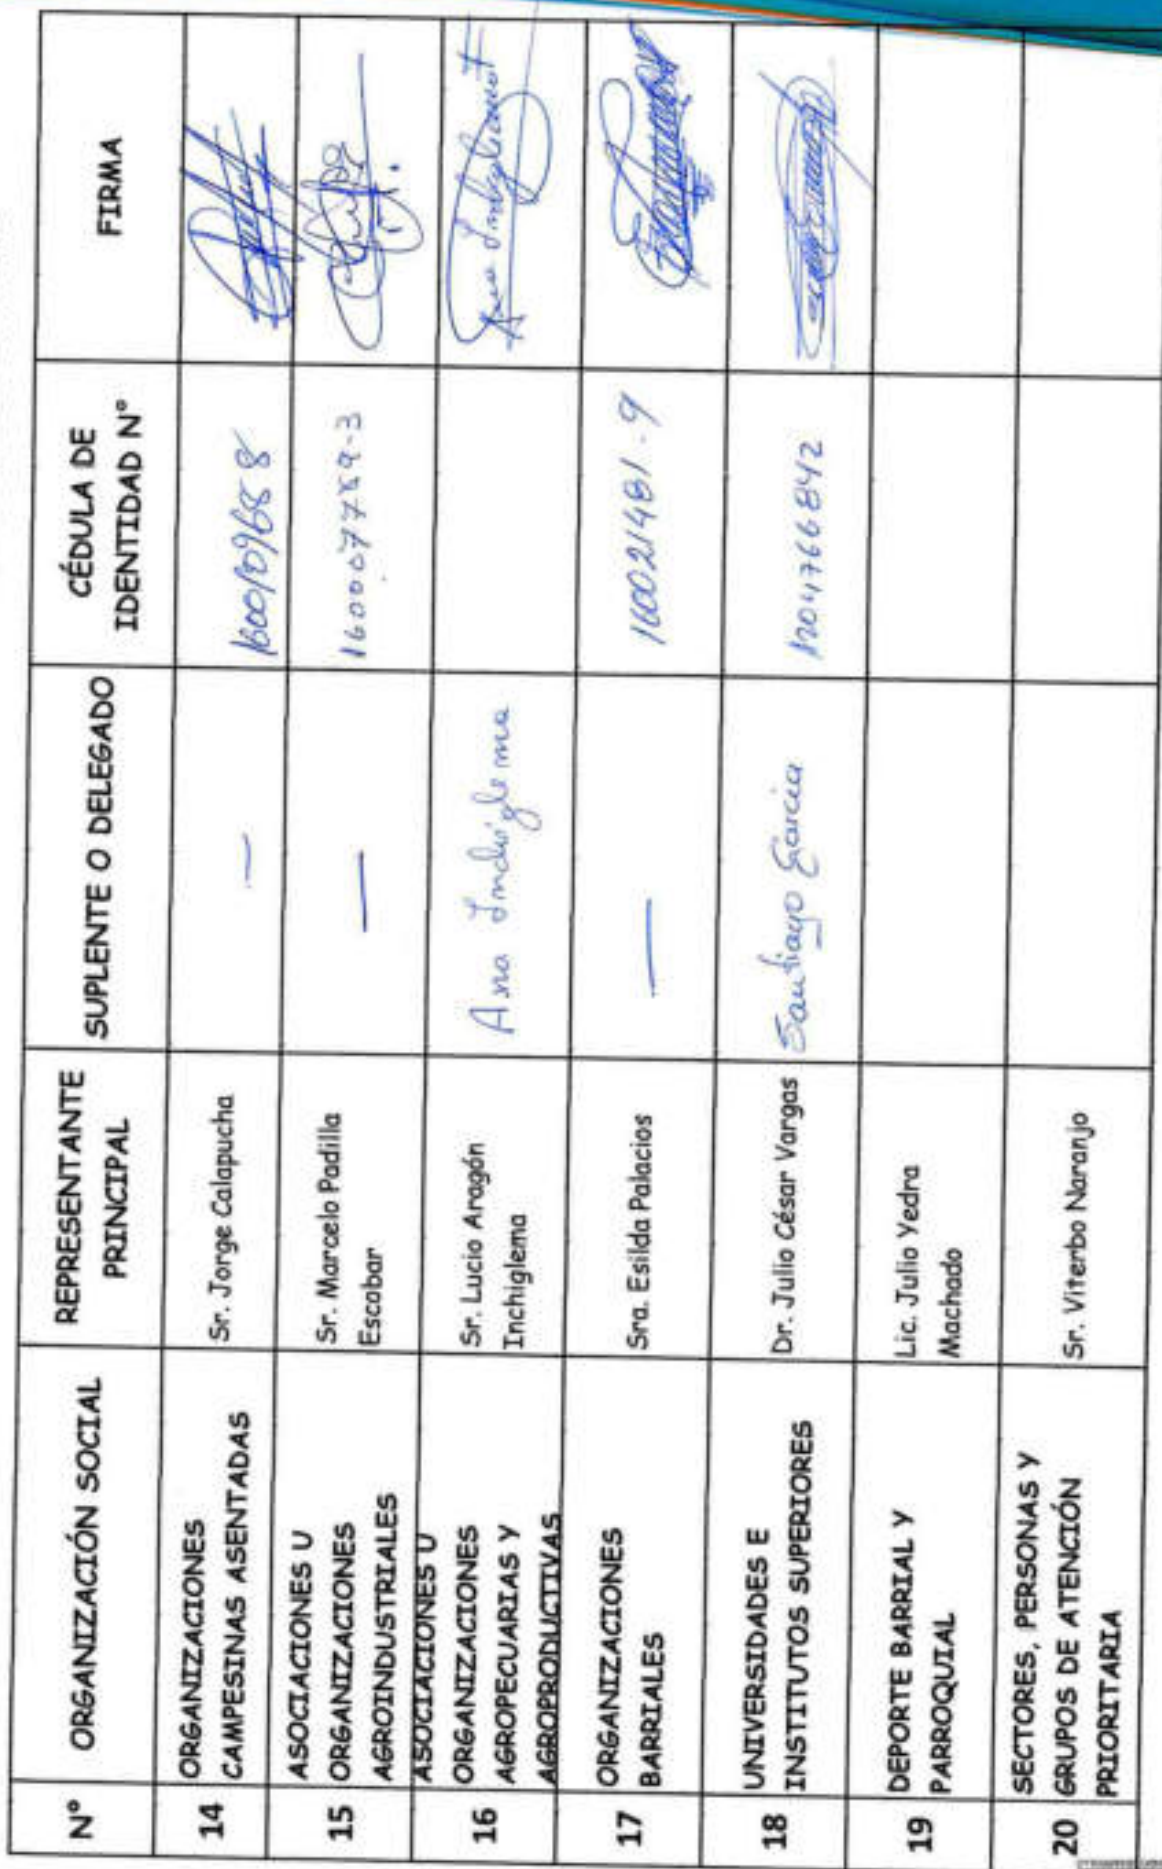 N° ORGANIZACIÓN SOCIAL REPRESENTANTE PRINCIPAL SUPLENTE O DELEGADO CÉDULA DE IDENTIDAD N° FIRMA
14
ORGANIZACIONES
CAMPESINAS ASENTADAS
Sr. Jorge Calapucha
—
15
ASOCIACIONES U
ORGANIZACIONES
AGROINDUSTRIALES
Sr. Marcelo Padilla
Escobar
—
16
ASOCIACIONES U
ORGANIZACIONES
AGROPECUARIAS Y
AGROPRODUCTIVAS
Sr. Lucio Aragón
Inchiglema
Ana
17
ORGANIZACIONES
BARRIALES
Sra. Esilda Palacios
—
160021481-9
18
UNIVERSIDADES E
INSTITUTOS SUPERIORES
Dr. Julio César Vargas
Santiago García
19
DEPORTE BARRIAL Y
PARROQUIAL
Lic. Julio Yedra
Machado
20
SECTORES, PERSONAS Y
GRUPOS DE ATENCIÓN
PRIORITARIA
Sr. Viterbo Naranjo